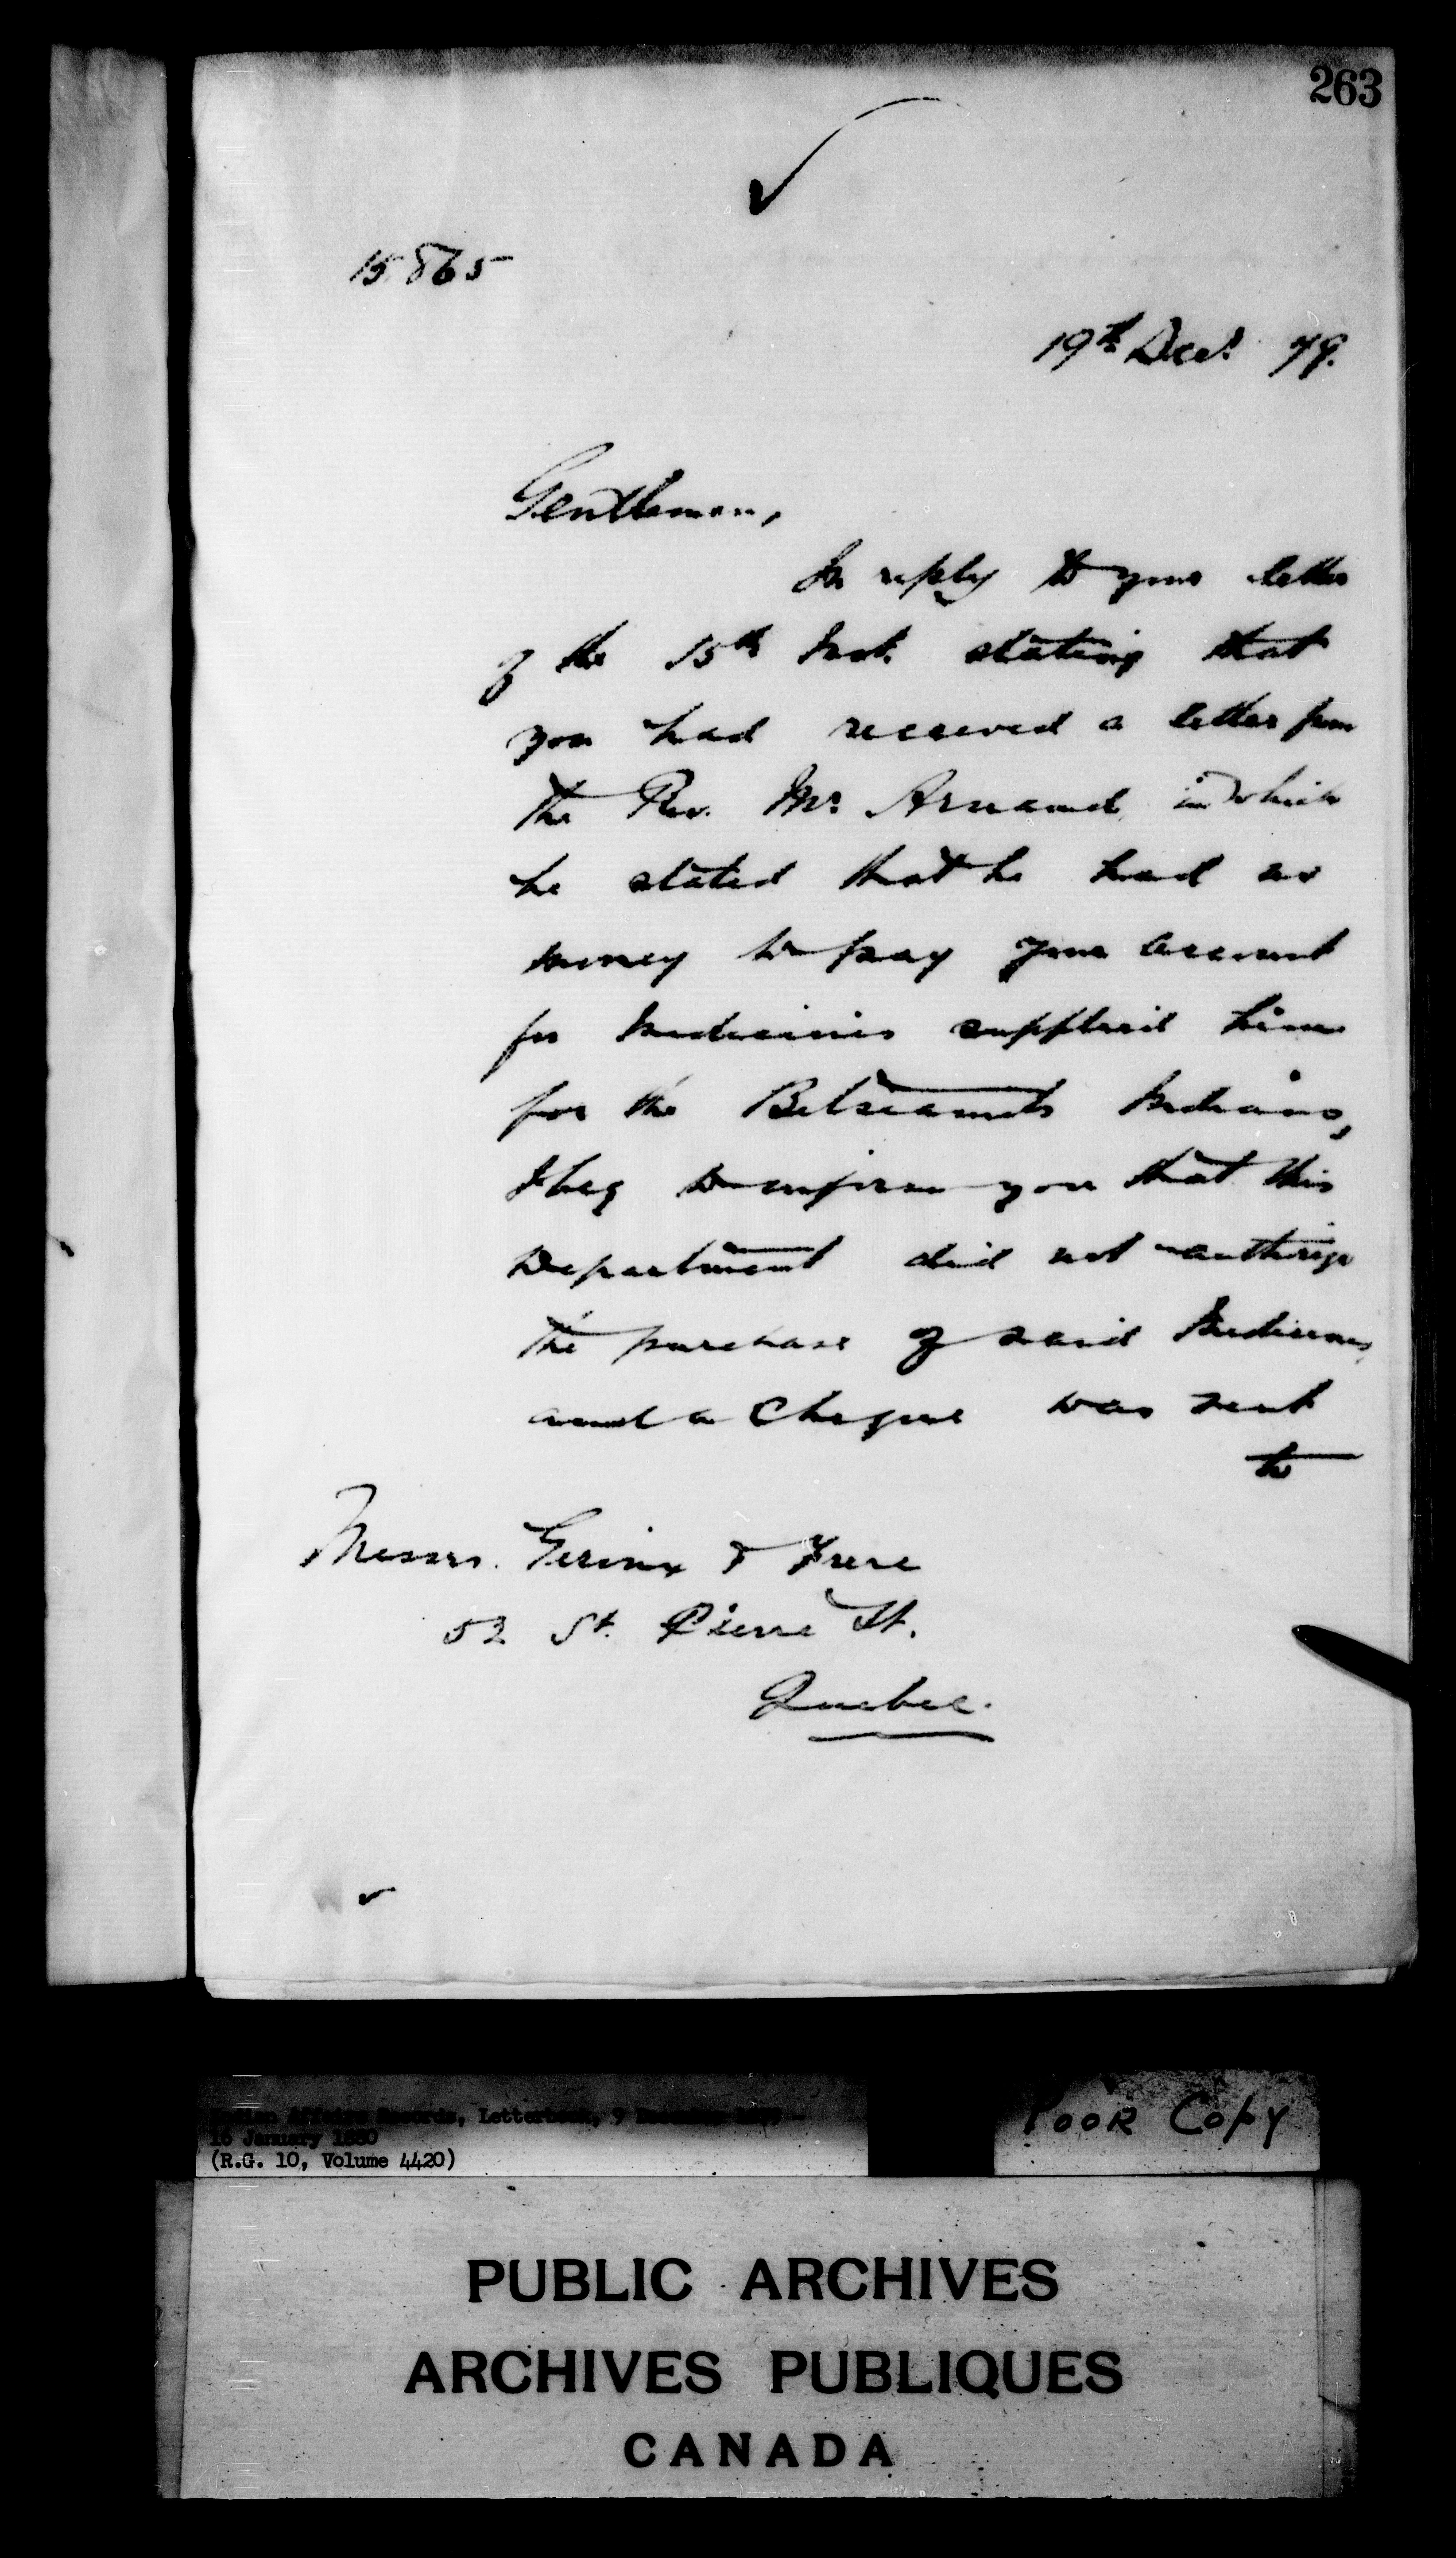 263
15865
19th Decr 79.
Gentlemen,
In reply to your letter
of the 15th Inst. stating that
you had received a letter from
the Rev. Mr. Arnaud, in which
he stated that he had no
money to pay your account
for medicines supplied him
for the Betsiamits Indians,
I beg to inform you that this
Department did not authorize
the purchase of said Medicines,
and a Cheque was sent
to
Messrs. & Frere
52 St. Pierre St.
Quebec.
Indian Affairs Records, Letterbook, 9 December 1879 -
16 January 1880
(R.G. 10, Volume 4420)
POOR COPY
PUBLIC ARCHIVES
ARCHIVES PUBLIQUES
CANADA